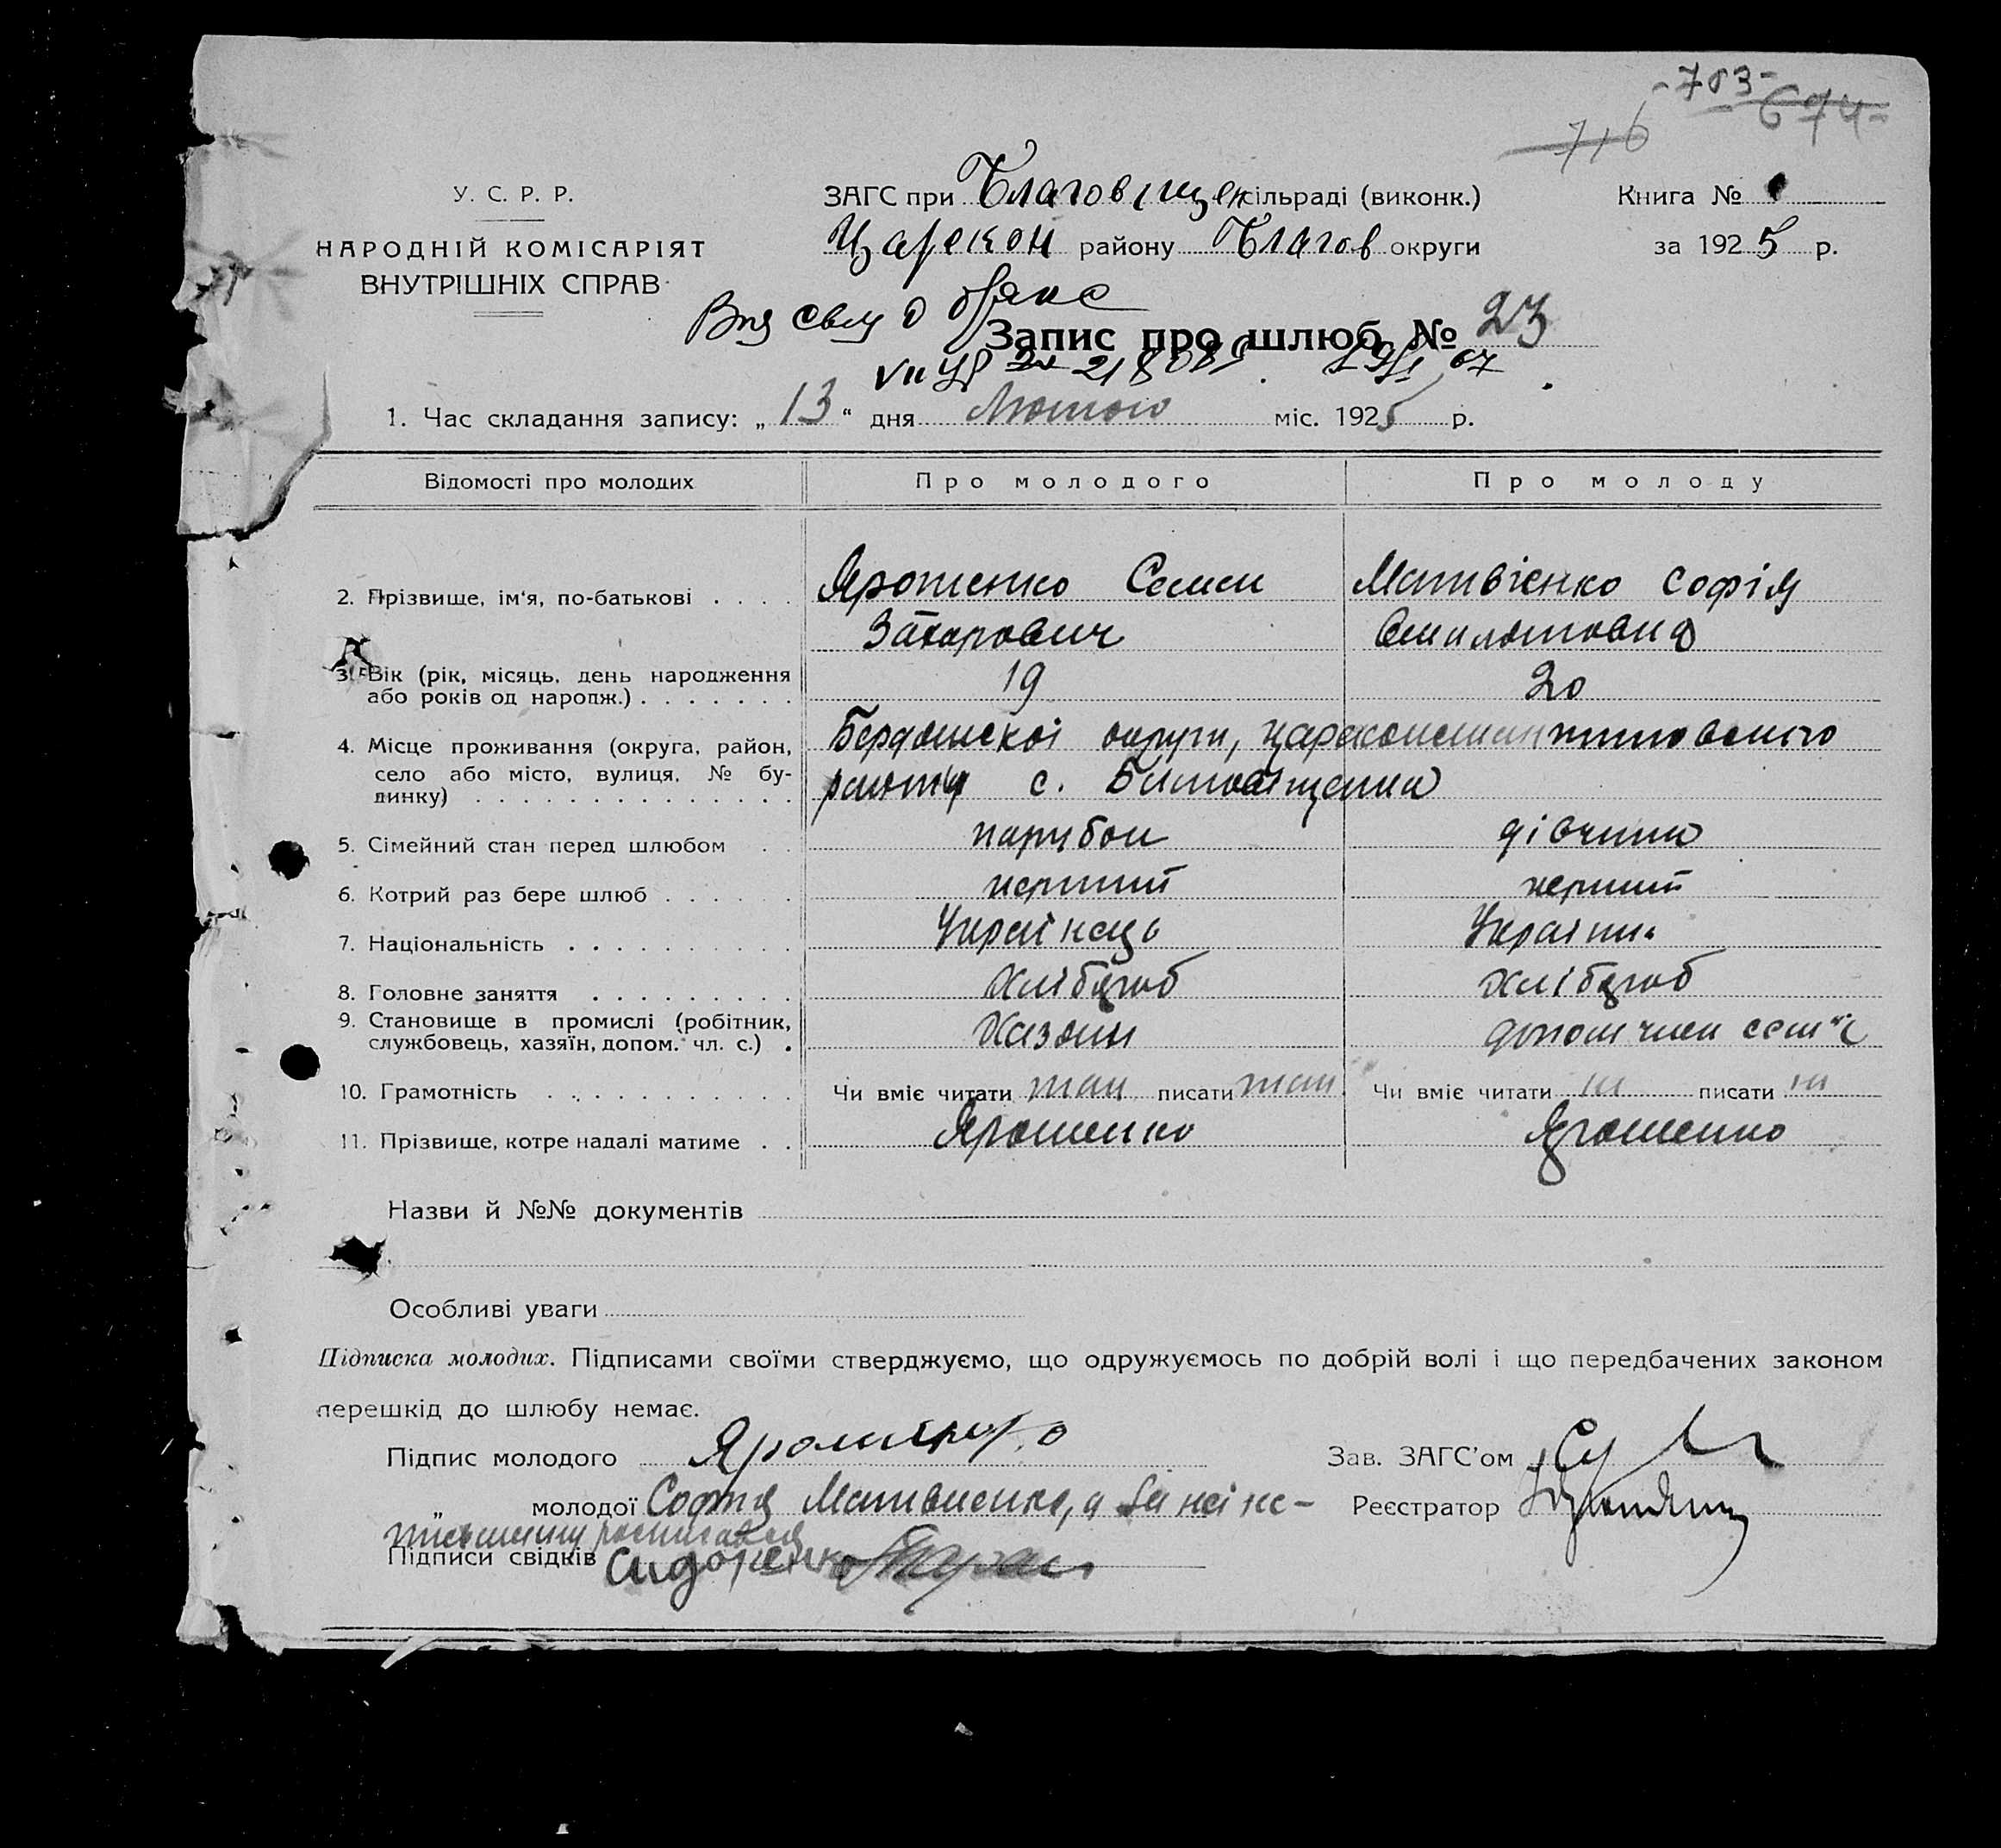 - 703 -
716 674 -
У. С. Р. Р. ЗАГС при Благовіщен сільраді (виконк.) Книга №
НАРОДНІЙ КОМІСАРІЯТ Царекон району Благов округи за 1925 р.
ВНУТРІШНІХ СПРАВ
о браке
Запис про шлюб № 23
1. Час складання запису: „13“ дня Лютого міс. 1925 р.
Відомості про молодих Про молодого Про молоду
2. Прізвище, ім'я, по-батькові . . . . Ярошенко Семен Матвієнко Софія
Захарович
3. Вік (рік, місяць, день народження 19 20
або років од народж.) . . . . . . .
4. Місце проживання (округа, район, Бердянскоі округи, Цареконстантиновского
село або місто, вулиця, № бу- району с. Благовіщенка
динку) . . . . . . . . . . . . . .
5. Сімейний стан перед шлюбом . . парубок дівчина
6. Котрий раз бере шлюб . . . . . . перший перший
7. Національність . . . . . . . . . . Українець Україн.
8. Головне заняття . . . . . . . . . Хлібороб Хлібороб
9. Становище в промислі (робітник, Хазяин допом член сем'ї
службовець, хазяїн, допом. чл. с.) .
10. Грамотність . . . . . . . . . . . Чи вміє читати так писати так Чи вміє читати ні писати ні
11. Прізвище, котре надалі матиме . . Ярошенко Ярошенко
Назви й №№ документів
Особливі уваги
Підписка молодих. Підписами своїми стверджуємо, що одружуємось по добрій волі і що передбачених законом
перешкід до шлюбу немає.
Підпис молодого Ярошенко Зав. ЗАГС'ом
„ молодої Софія Матвиенко, а за неі не- Реєстратор
письмену росписався
Підписи свідків Сидоренко